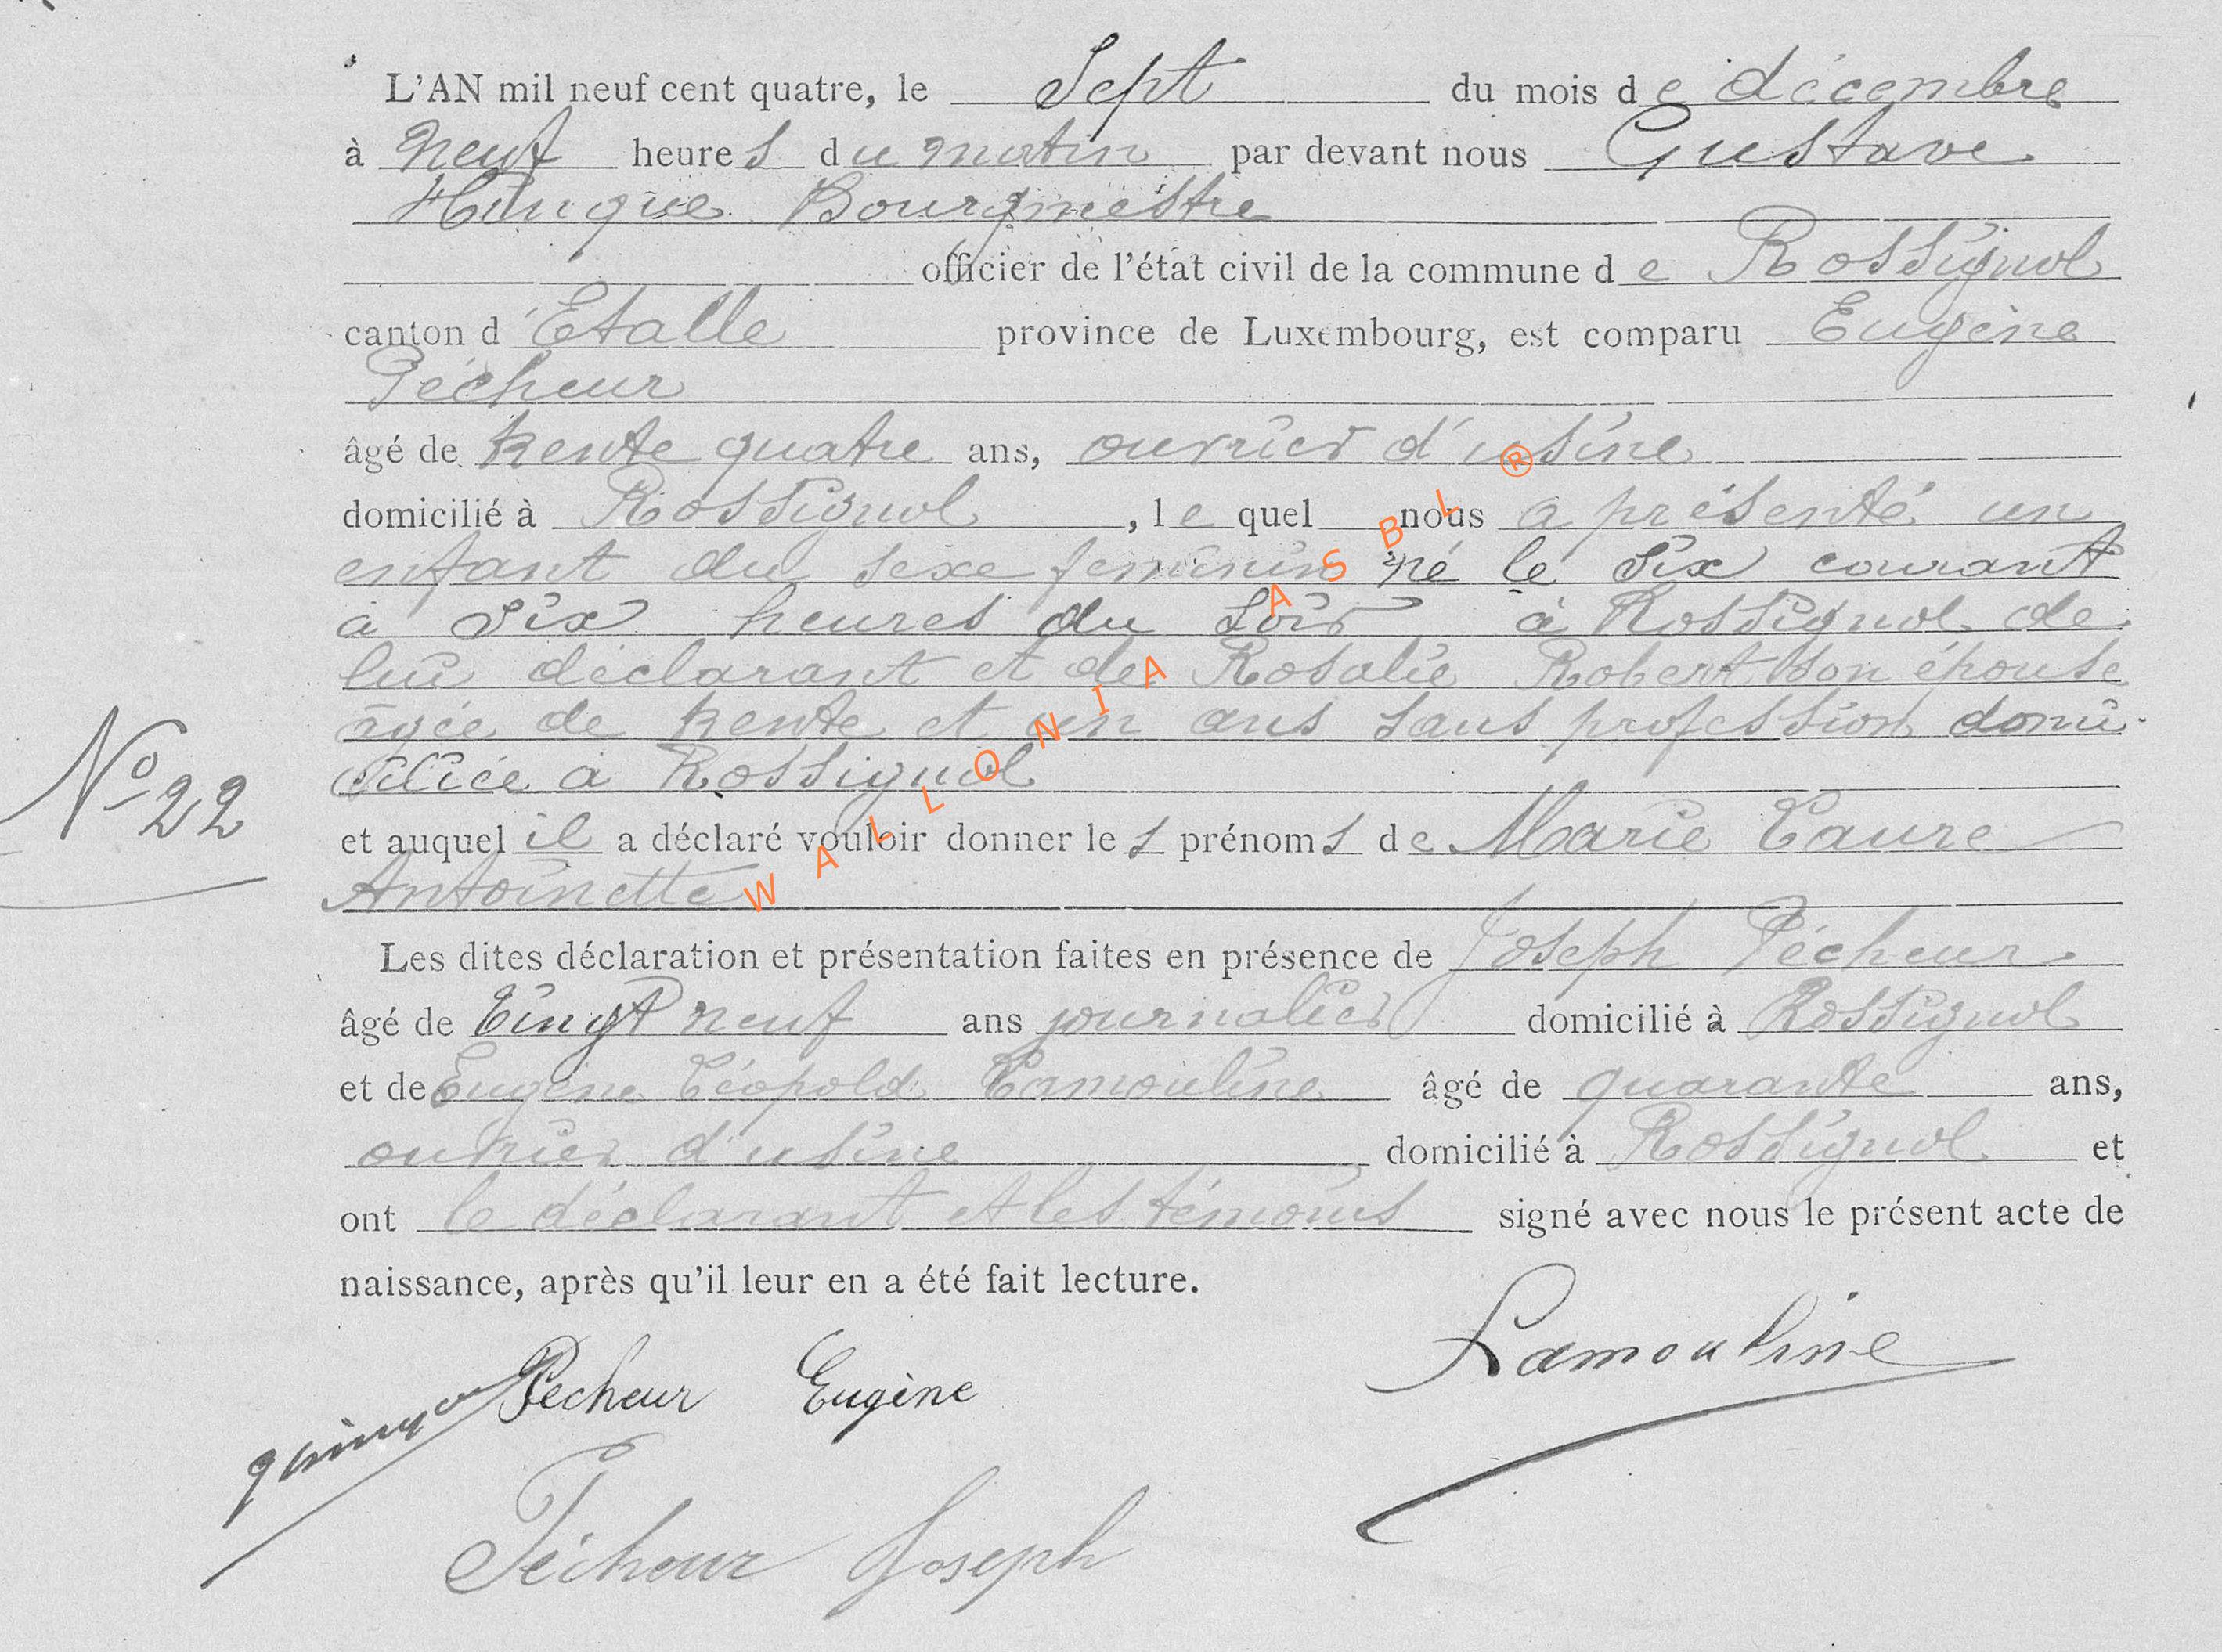 L'AN mil neuf cent quatre, le Sept du mois de décembre
à neuf heures du matin par devant nous Gustave
Hurieque Bourgmestre
officier de l'état civil de la commune de Rossignol
canton d'Etalle province de Luxembourg, est comparu Eugène
Pécheur
âgé de trente quatre ans, ouvrier d'usine
domicilié à Rossignol, lequel nous a présenté un
enfant du sexe feminin né le six courant
à six heures du soir à Rossignol de
lui déclarant et de Rosalie Robert son épouse
âgée de trente et un ans sans profession domi-
ciliée à Rossignol
No 22
et auquel il a déclaré vouloir donner les prénoms de Marie Laure
Antoinette
Les dites déclaration et présentation faites en présence de Joseph Pécheur
âgé de Vingt neuf ans journalier domicilié à Rossignol
et de Eugène Léopold Lamouline âgé de quarante ans,
ouvrier d'usine, domicilié à Rossignol et
ont le déclarant et les témoins signé avec nous le présent acte de
naissance, après qu'il leur en a été fait lecture.
Pecheur Eugène
Lamouline
Pécheur Joseph
WALLONIA ASBL ®